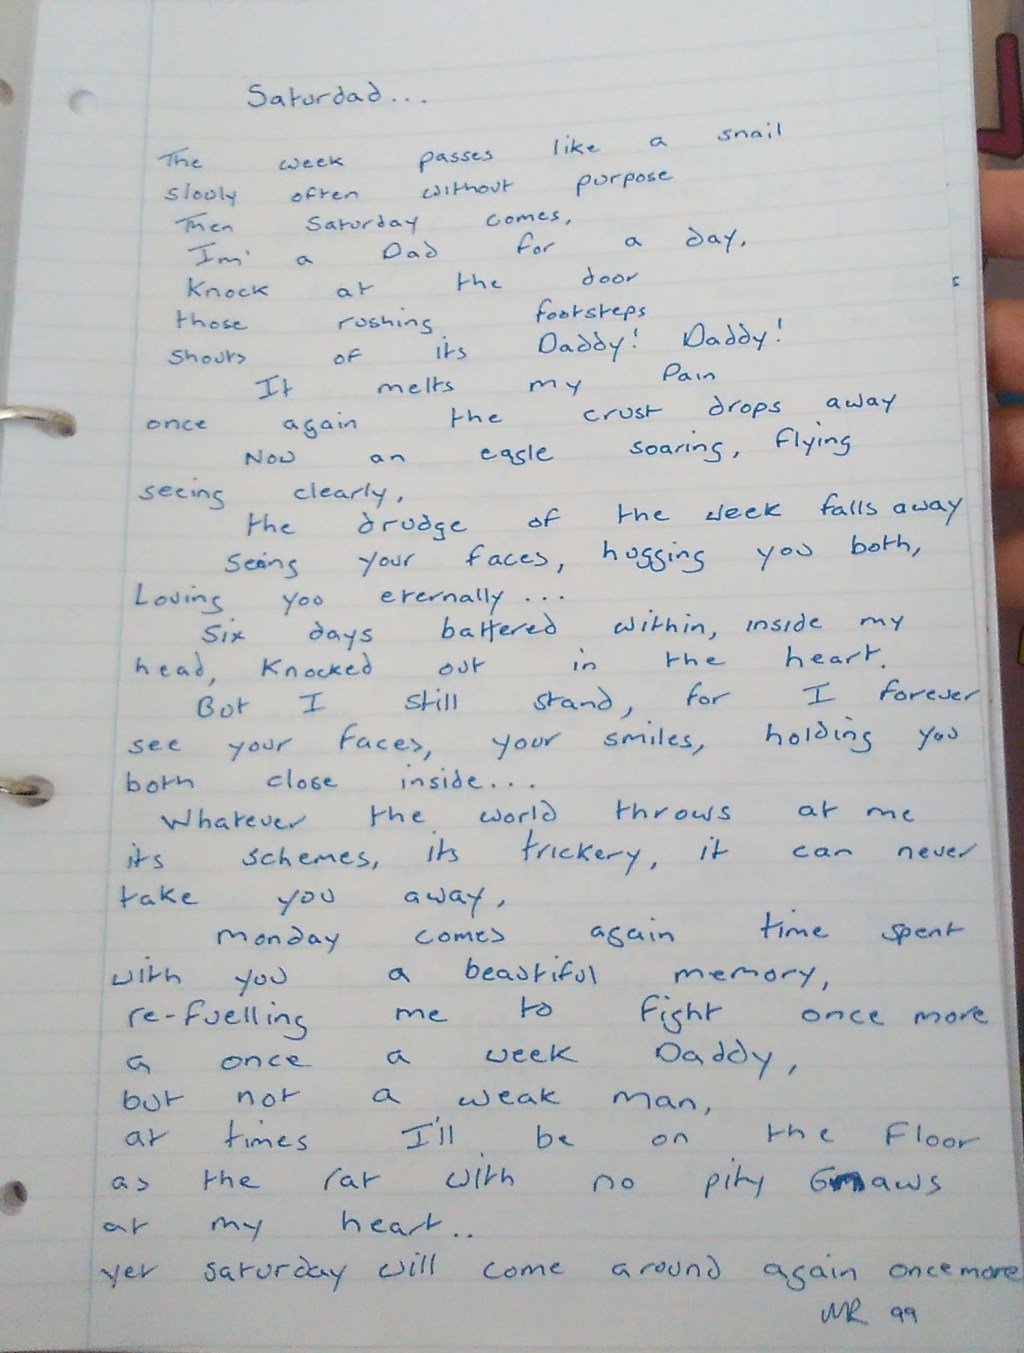 Saturdad...
The week passes like a snail
slowly often without purpose
Then Saturday comes,
Im' a Dad for a day,
Knock at the door
those rushing footsteps
shouts of its Daddy! Daddy!
It melts my Pain
once again the crust drops away
Now an eagle soaring, flying
seeing clearly,
the drudge of the week falls away
Seeing your faces, hugging you both,
Loving you eternally...
Six days battered within, inside my
head, knocked out in the heart.
But I still stand, for I forever
see your faces, your smiles, holding you
both close inside...
Whatever the world throws at me
its schemes, its trickery, it can never
take you away,
Monday comes again time spent
with you a beautiful memory,
re-fuelling me to fight once more
a once a week Daddy,
but not a weak man,
at times I'll be on the Floor
as the rat with no pity Gnaws
at my heart..
yet saturday will come around again once more
MR 99